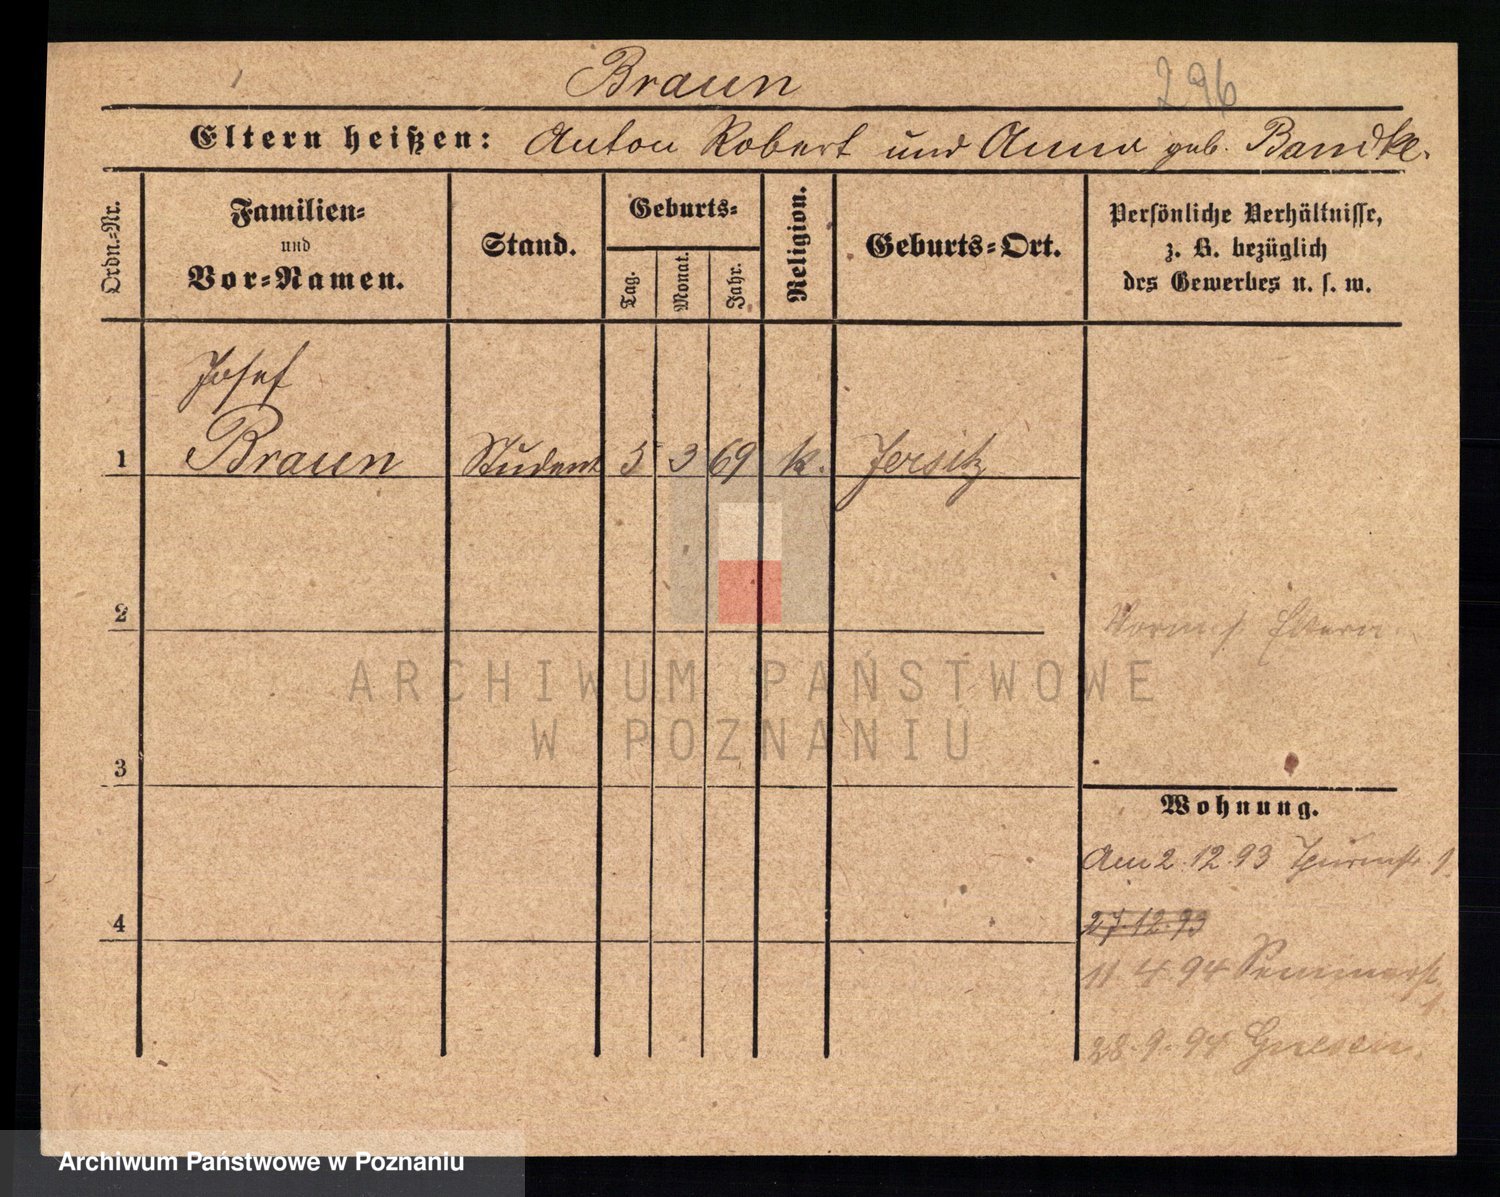 Braun
296
Eltern heißen: Anton Robert und Anna geb. Bandke.
Ordn.-Nr.
Familien-
und
Vor-Namen.
Stand.
Geburts-
Tag.
Monat.
Jahr.
Religion.
Geburts-Ort.
Persönliche Verhältnisse,
z. B. bezüglich
des Gewerbes u. s. w.
Josef
1 Braun Student 5 3 69 k. Jersitz
2
Eltern
3
Wohnung.
Am 2.12.93 Thurmstr. 9.
4
27.12.93
11.4.94 Seminarstr.
28.9.94 Gnesen.
ARCHIWUM PAŃSTWOWE
W POZNANIU
Archiwum Państwowe w Poznaniu